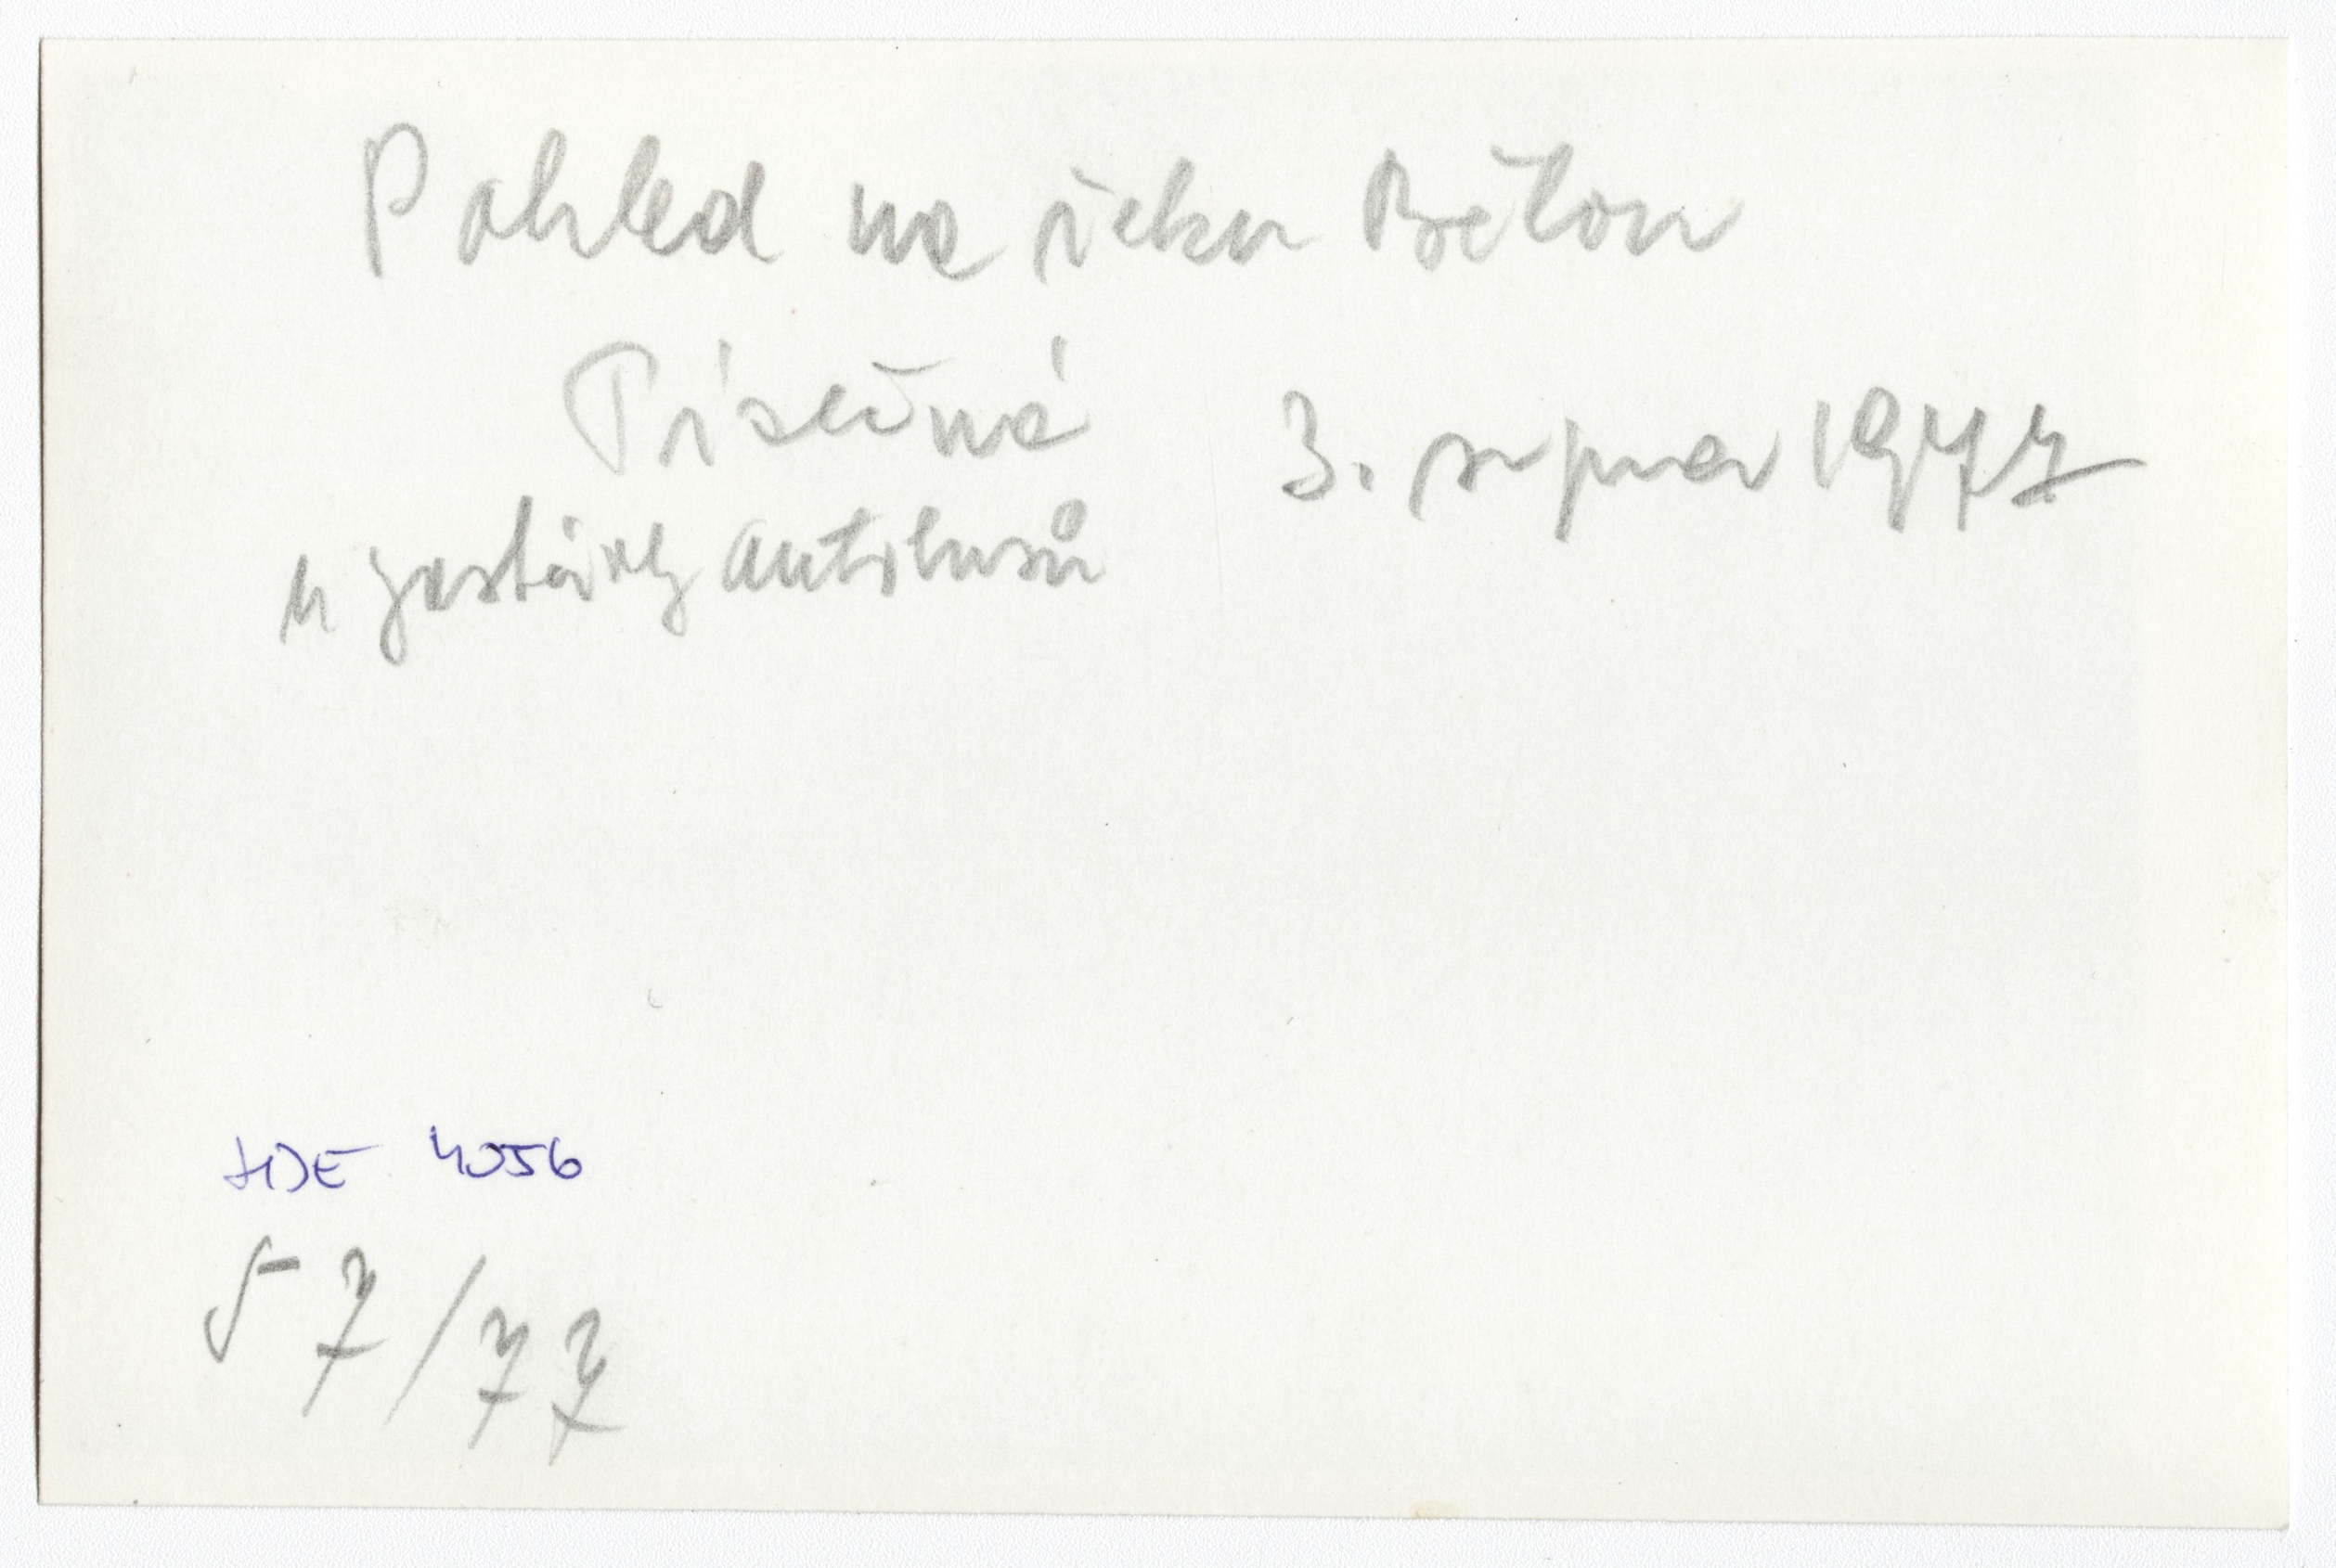 Pohled na řeku Bělou
Písečná
3. srpna 1977
u zastávky autobusů
HDE 4056
57/77